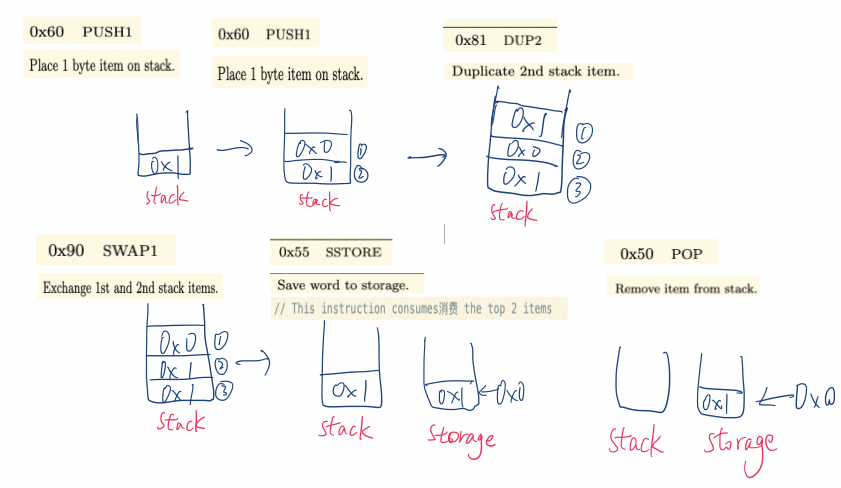 0x60 PUSH1
Place 1 byte item on stack.
0x1
stack
0x60 PUSH1
Place 1 byte item on stack.
0x0 ①
0x1 ②
stack
0x81 DUP2
Duplicate 2nd stack item.
0x1 ①
0x0 ②
0x1 ③
stack
0x90 SWAP1
Exchange 1st and 2nd stack items.
0x0 ①
0x1 ②
0x1 ③
stack
0x55 SSTORE
Save word to storage.
// This instruction consumes消费 the top 2 items
0x1
stack
0x1 0x0
storage
0x50 POP
Remove item from stack.
stack
0x1 0x0
storage